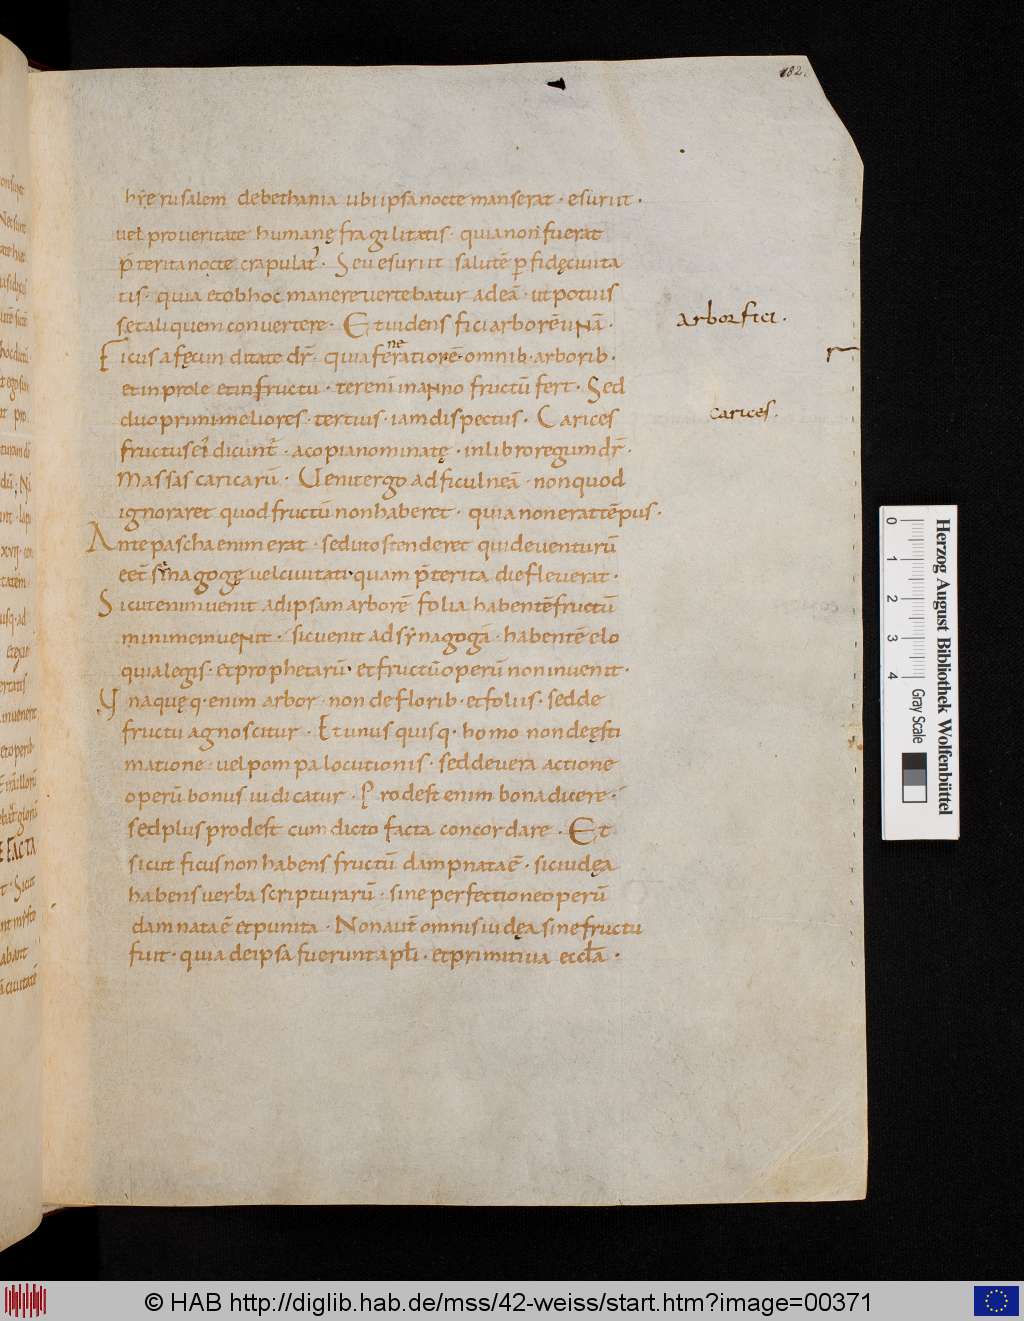 182.
hÿerusalem de bethania ubi ipsa nocte manserat · esuriit ·
uel pro ueritate humanę fragilitatis · quia non fuerat
p̄terita nocte crapulat' · Seu esuriit salutē p fidę ciuita
tis · quia et ob hoc mane reuertebatur ad eā · ut potuis
sęt aliquem conuertere · Et uidens fici arborē unā ·
arbor fici ·
Ficus a fęcunditate dr̄ · quia feneratior ē · omnib · arborib ·
et in prole et in fructu · ter enim in anno fructū fert · Sed
duo primi meliores · tertius · iam dispectus · Carices
carices ·
fructus ei dicunt̄ · a copia nominatę · in libro regum dr̄ ·
Massas caricarū · Uenit ergo ad ficulneā · non quod
ignoraret quod fructū non haberet · quia non erat tēpus ·
Ante pascha enim erat · sed ut ostenderet quid euenturū
eēt sinagogę uel ciuitati · quam p̄terita die fleuerat ·
Sicut enim uenit ad ipsam arborē folia habentē fructū
minime inuenit · sic uenit ad synagogā · habentē elo
quia legis · et prophetarū · et fructū operū non inuenit ·
Ynaquęq · enim arbor · non de florib · et foliis · sed de
fructu agnoscitur · Et unus quisq · homo non de ęsti
matione · uel pompa locutionis · sed de uera actione
operū bonus iudicatur · Prodest enim bona dicere ·
sed plus prodest cum dicto facta concordare · Et
sicut ficus non habens fructū dampnata ē · sic iudęa
habens uerba scripturarū · sine perfectione operū
damnata ē et punita · Non aut̄ omnis iudęa sine fructu
fuit · quia de ipsa fuerunt apl̄i · et primitiua eccl̄a ·
0 1 2 3 4
Gray Scale
Herzog August Bibliothek Wolfenbüttel
© HAB http://diglib.hab.de/mss/42-weiss/start.htm?image=00371